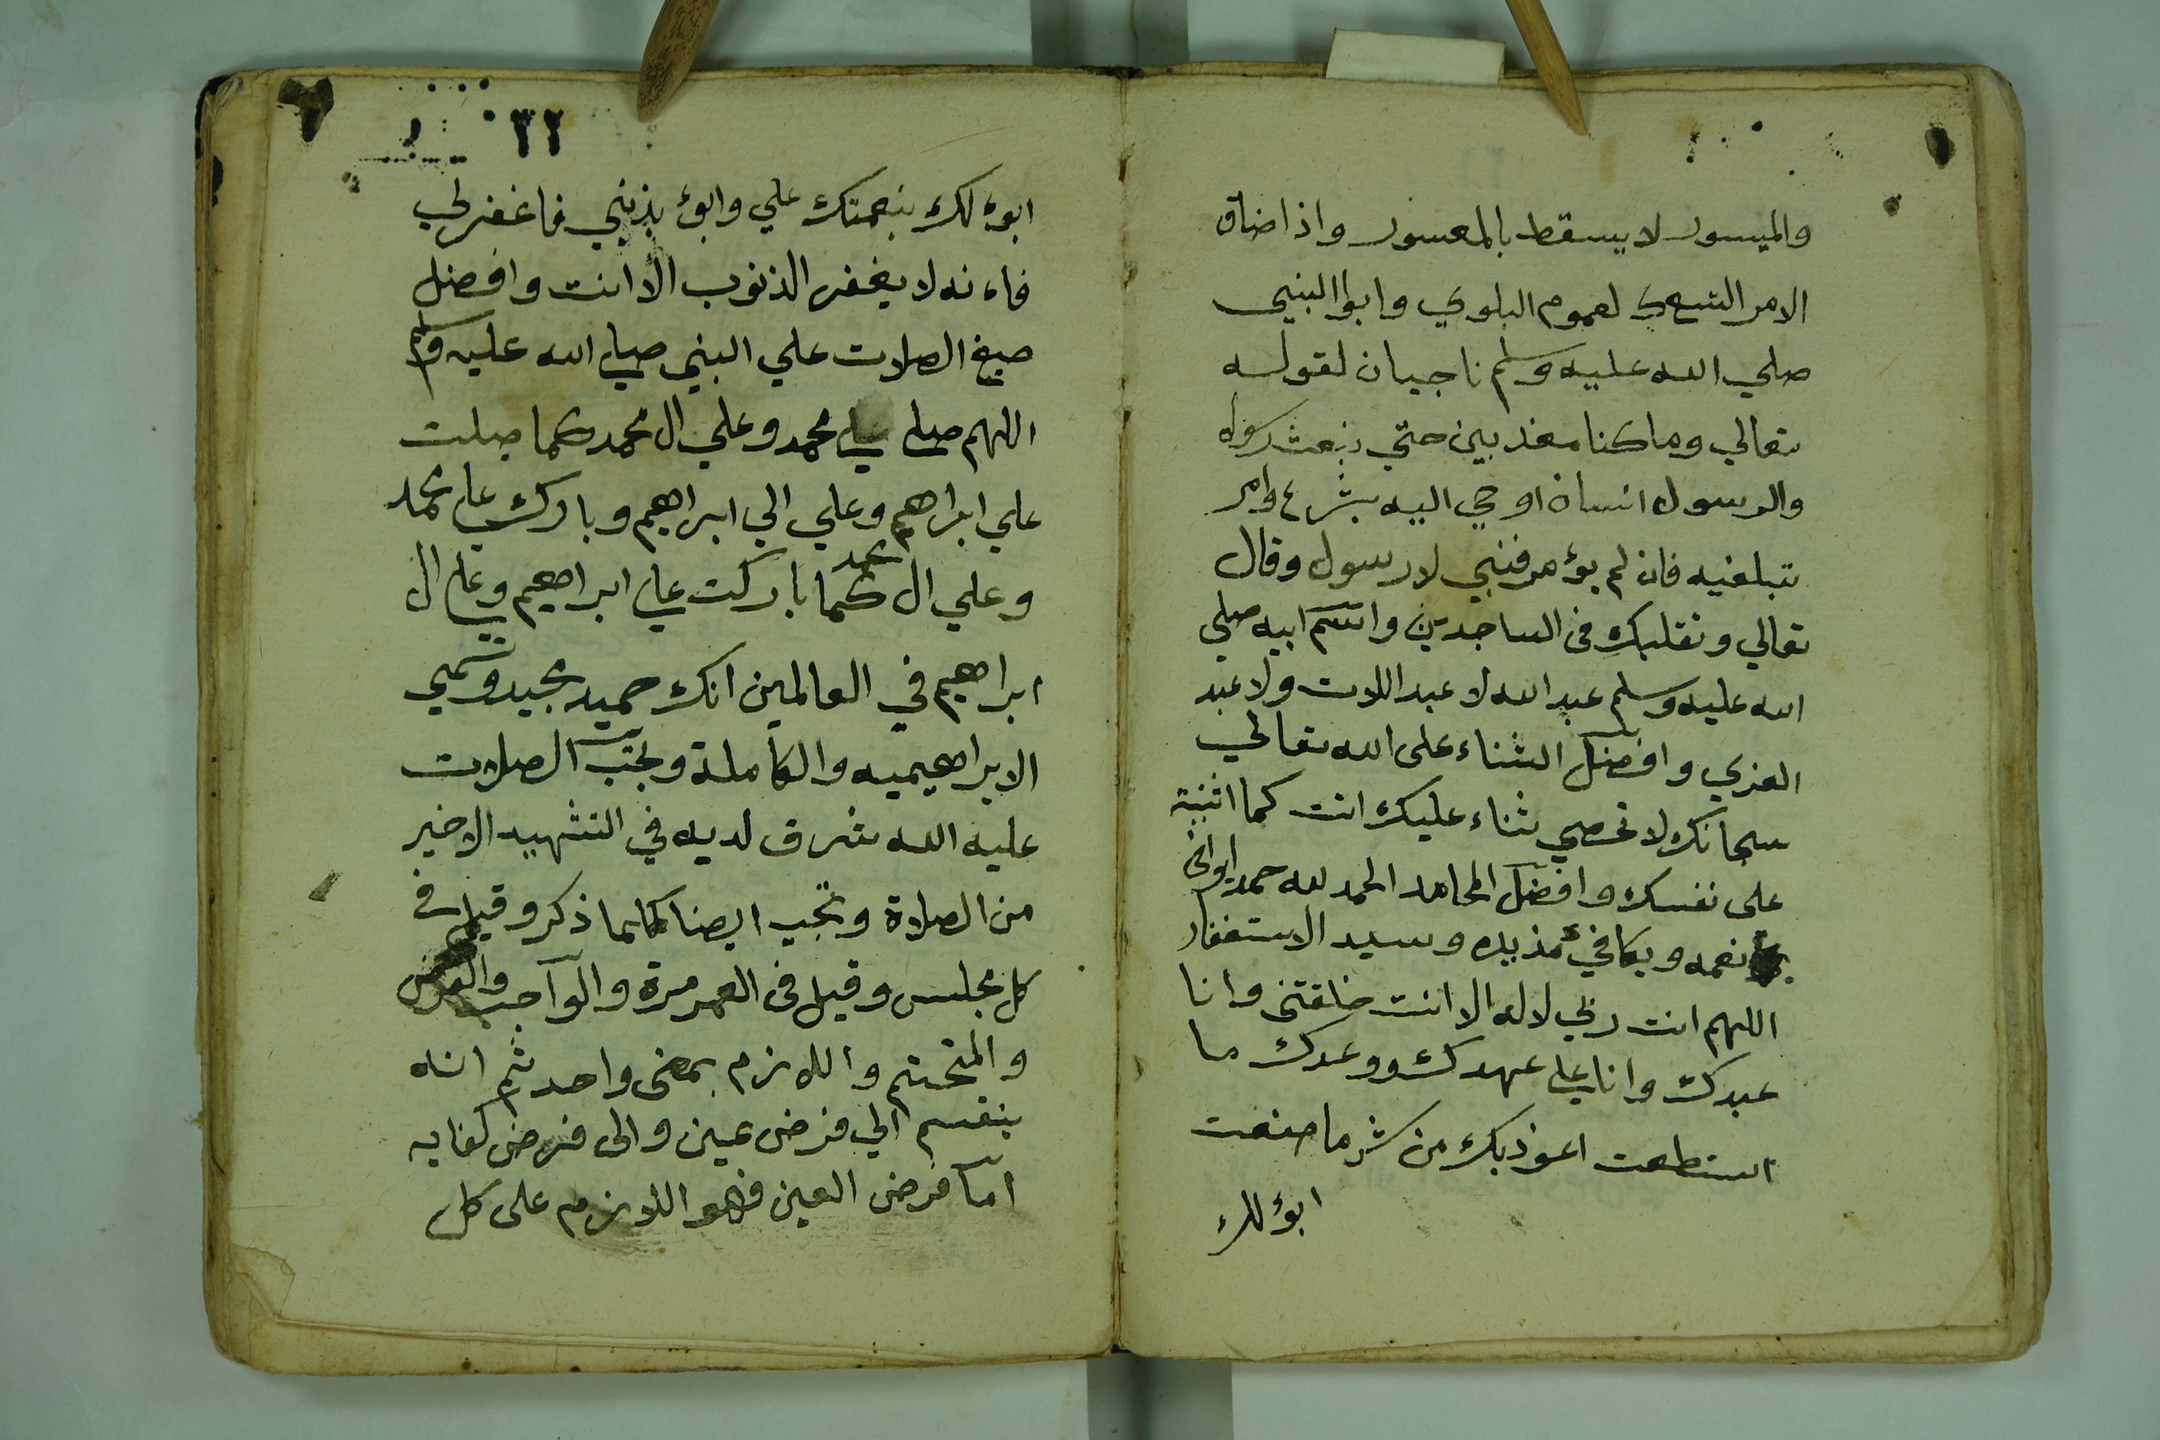 والميسور لا يسقط بالمعسور واذا ضاق
الامر اتسع كـ لعموم البلوي وابوا النبي
صلي الله عليه وسلم ناجيان لقوله
تعالي وما كنا معذبين حتي نبعث رسولا
والرسول انسان اوحي اليه بشرع وامر
بتبليغيه فان لم يؤمر فنبي لا رسول وقال
تعالي وتقلبك في الساجدين واسم ابيه صلي
الله عليه وسلم عبد الله لا عبد اللات ولا عبد
العزي وافضل الثناء على الله تعالي
سبحانك لا نحصي ثناء عليك انت كما اثنيت
على نفسك وافضل المحامد الحمد لله حمدا يوافي
نعمه ويكافئ مزيده وسيد الاستغفار
اللهم انت ربي لا اله الا انت خلقتني وانا
عبدك وانا علي عهدك ووعدك ما
استطعت اعوذ بك من شر ما صنعت
ابؤ لك
٣٢
ابوء لك بنعمتك علي وابوء بذنبي فاغفر لي
فاءنه لا يغفر الذنوب الا انت وافضل
صيغ الصلات علي النبي صلي الله عليه وسلم
اللهم صلي علي محمد وعلي ال محمد كما صليت
علي ابراهيم وعلي الي ابراهيم وبارك علي محمد
وعلي ال محمد كما باركت علي ابراهيم وعلي ال
ابراهيم في العالمين انك حميد مجيد وتسمي
الابراهيميه والكاملة وتجب الصلات
عليه الله شرق لديه في التشهيد الاخير
من الصلاة وتجب ايضا كلما ذكر وقيل في
كل مجلس وقيل في العمر مرة والواجب والفرض
والمتحتم واللازم بمعنى واحد ثم انه
ينقسم الي فرض عين والى فرض كفايه
اما فرض العين فهو اللازم على كل